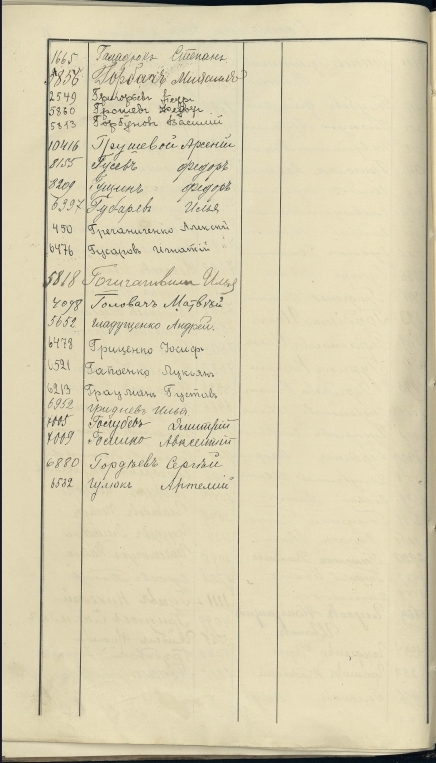 1665 Степанъ
5856 Горбачъ Михаилъ
2549 Григорьевъ Петръ
5860
5813 Горбуновъ Василій
10416 Грушевой Арсеній
8155 Гусевъ Федоръ
8209 Гущинъ Федоръ
6397 Губаревъ Илья
450 Алексей
6476 Гусаровъ Игнатій
5818 Илья
7098 Головачъ Матвей
5652 гладущенко Андрей.
6478 Гриценко Іосиф
6521 Гапоенко Лукьянъ
6213 Грауманъ Густавъ
6952 гридневъ Илья
7005 Голубевъ Дмитрій
7009 Авксентій
6880 Гордѣевъ Сергѣй
6532 Артемій